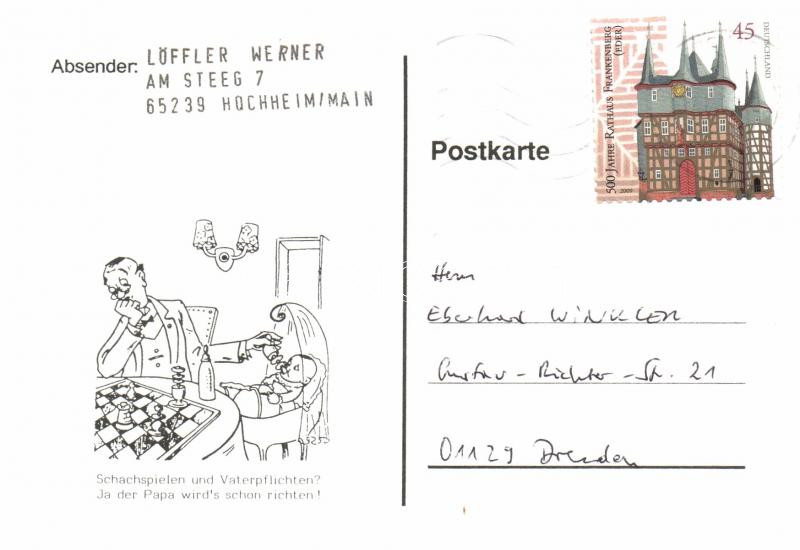 Absender: LÖFFLER WERNER
AM STEEG 7
65239 HOCHHEIM/MAIN
Postkarte
500 JAHRE RATHAUS FRANKENBERG
(EDER)
45
DEUTSCHLAND
2009
Herrn
Eberhard WINKLER
Gustav-Richter-Str. 21
01129 Dresden
Schachspielen und Vaterpflichten?
Ja der Papa wird's schon richten!